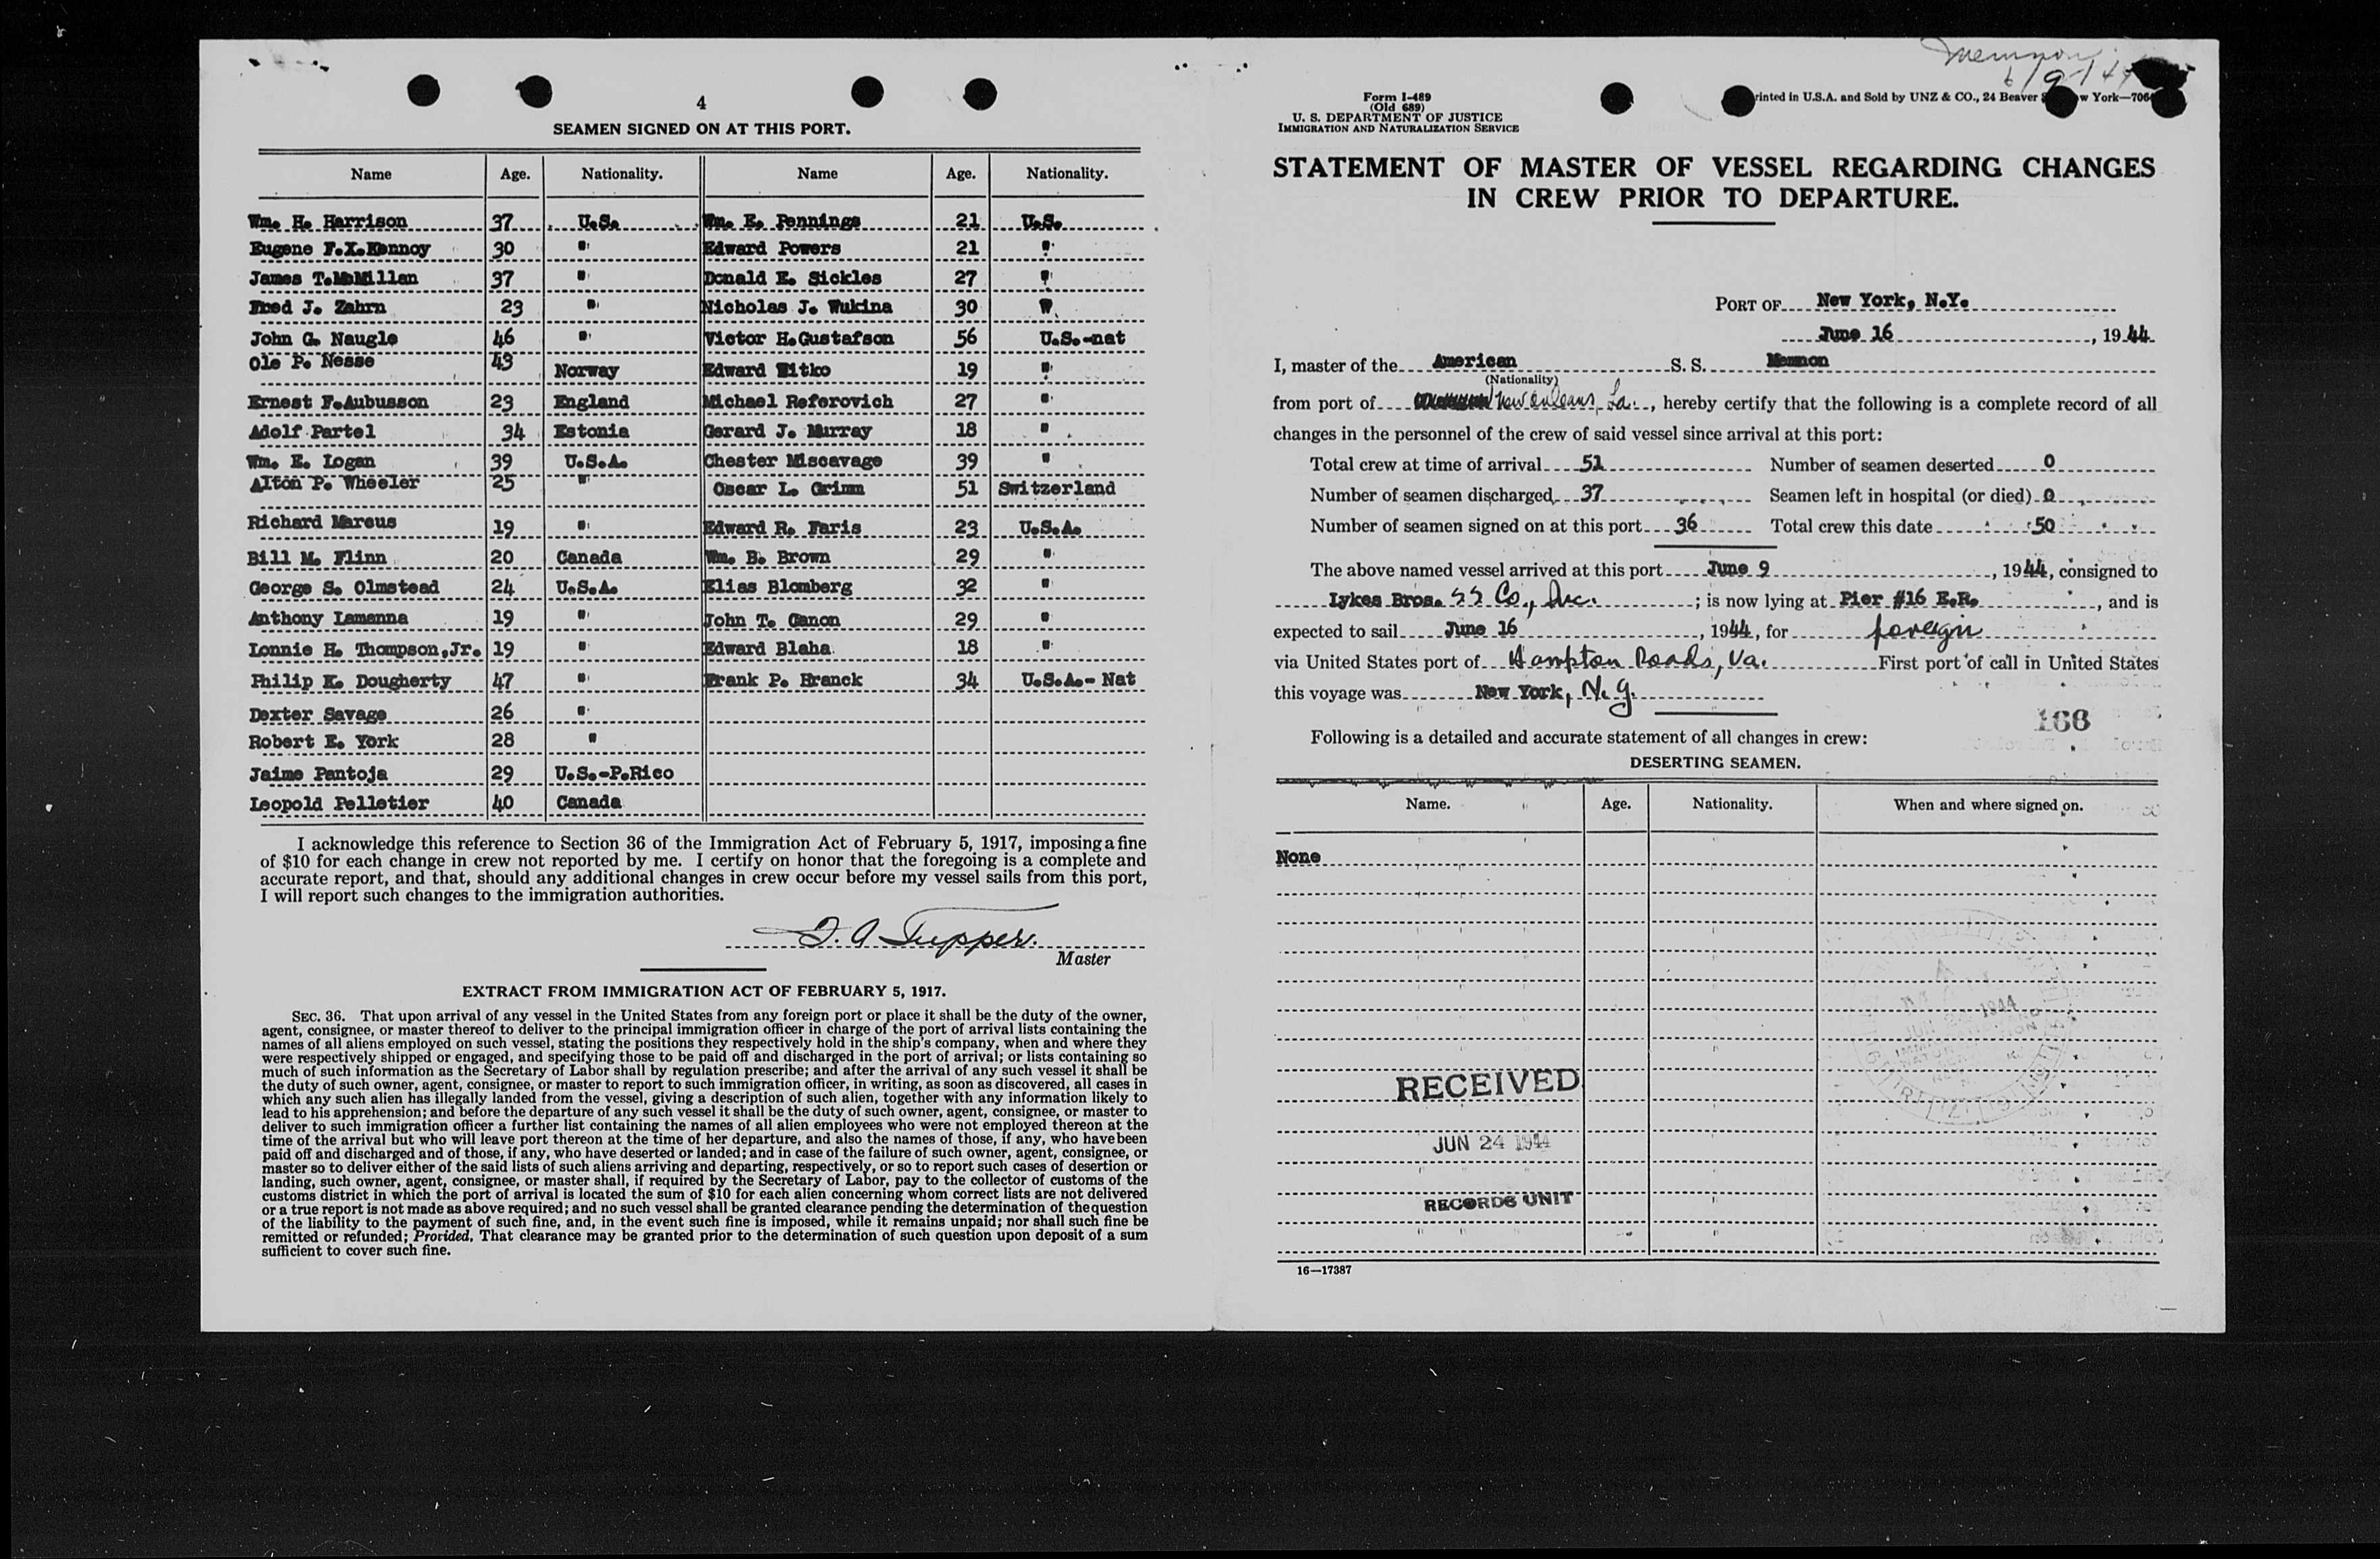 4
SEAMEN SIGNED ON AT THIS PORT.
Name Age. Nationality. Name Age. Nationality.
Wm. H. Harrison 37 U.S. Wm. E. Pennings 21 U.S.
Eugene F.X.Kennoy 30 " Edward Powers 21 "
James T.McMillan 37 " Donald E. Sickles 27 "
Fred J. Zahrn 23 " Nicholas J. Wukina 30 "
John G. Naugle 46 " Victor H.Gustafson 56 U.S.-nat
Ole P. Nesse 43 Norway Edward Witko 19 "
Ernest F.Aubusson 23 England Michael Referovich 27 "
Adolf Partel 34 Estonia Gerard J. Murray 18 "
Wm. E. Logan 39 U.S.A. Chester Miscavage 39 "
Alton P. Wheeler 25 " Oscar L. Grimm 51 Switzerland
Richard Marcus 19 " Edward R. Faris 23 U.S.A.
Bill M. Flinn 20 Canada Wm. B. Brown 29 "
George S. Olmstead 24 U.S.A. Elias Blomberg 32 "
Anthony Lamanna 19 " John T. Canon 29 "
Lonnie H. Thompson,Jr. 19 " Edward Blaha 18 "
Philip K. Dougherty 47 " Frank P. Hranck 34 U.S.A.- Nat
Dexter Savage 26 "
Robert E. York 28 "
Jaime Pantoja 29 U.S.-P.Rico
Leopold Pelletier 40 Canada
I acknowledge this reference to Section 36 of the Immigration Act of February 5, 1917, imposing a fine
of $10 for each change in crew not reported by me. I certify on honor that the foregoing is a complete and
accurate report, and that, should any additional changes in crew occur before my vessel sails from this port,
I will report such changes to the immigration authorities.
Tupper.
Master
EXTRACT FROM IMMIGRATION ACT OF FEBRUARY 5, 1917.
SEC. 36. That upon arrival of any vessel in the United States from any foreign port or place it shall be the duty of the owner,
agent, consignee, or master thereof to deliver to the principal immigration officer in charge of the port of arrival lists containing the
names of all aliens employed on such vessel, stating the positions they respectively hold in the ship's company, when and where they
were respectively shipped or engaged, and specifying those to be paid off and discharged in the port of arrival; or lists containing so
much of such information as the Secretary of Labor shall by regulation prescribe; and after the arrival of any such vessel it shall be
the duty of such owner, agent, consignee, or master to report to such immigration officer, in writing, as soon as discovered, all cases in
which any such alien has illegally landed from the vessel, giving a description of such alien, together with any information likely to
lead to his apprehension; and before the departure of any such vessel it shall be the duty of such owner, agent, consignee, or master to
deliver to such immigration officer a further list containing the names of all alien employees who were not employed thereon at the
time of the arrival but who will leave port thereon at the time of her departure, and also the names of those, if any, who have been
paid off and discharged and of those, if any, who have deserted or landed; and in case of the failure of such owner, agent, consignee, or
master so to deliver either of the said lists of such aliens arriving and departing, respectively, or so to report such cases of desertion or
landing, such owner, agent, consignee, or master shall, if required by the Secretary of Labor, pay to the collector of customs of the
customs district in which the port of arrival is located the sum of $10 for each alien concerning whom correct lists are not delivered
or a true report is not made as above required; and no such vessel shall be granted clearance pending the determination of the question
of the liability to the payment of such fine, and, in the event such fine is imposed, while it remains unpaid; nor shall such fine be
remitted or refunded; Provided, That clearance may be granted prior to the determination of such question upon deposit of a sum
sufficient to cover such fine.
Memnon
6/9/44
Form I-489
(Old 689)
U. S. DEPARTMENT OF JUSTICE
IMMIGRATION AND NATURALIZATION SERVICE
rinted in U.S.A. and Sold by UNZ & CO., 24 Beaver w York—706
STATEMENT OF MASTER OF VESSEL REGARDING CHANGES
IN CREW PRIOR TO DEPARTURE.
PORT OF New York, N.Y.
June 16, 1944
I, master of the American S. S. Memnon
(Nationality)
from port of New Orleans, La., hereby certify that the following is a complete record of all
changes in the personnel of the crew of said vessel since arrival at this port:
Total crew at time of arrival 51 Number of seamen deserted 0
Number of seamen discharged 37 Seamen left in hospital (or died) 0
Number of seamen signed on at this port 36 Total crew this date 50
The above named vessel arrived at this port June 9, 1944, consigned to
Lykes Bros. SS Co., Inc.; is now lying at Pier #16 E.R., and is
expected to sail June 16, 1944, for foreign
via United States port of Hampton Roads, Va. First port of call in United States
this voyage was New York, N.Y.
168
Following is a detailed and accurate statement of all changes in crew:
DESERTING SEAMEN.
Name. Age. Nationality. When and where signed on.
None
RECEIVED
JUN 24 1944
RECORDS UNIT
16—17387